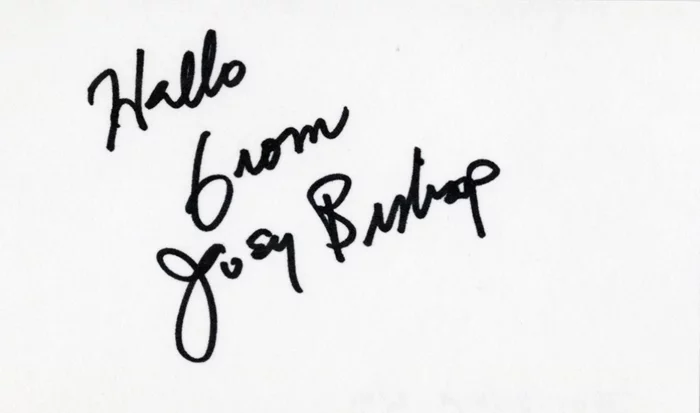 Hallo
from
Joey Bishop